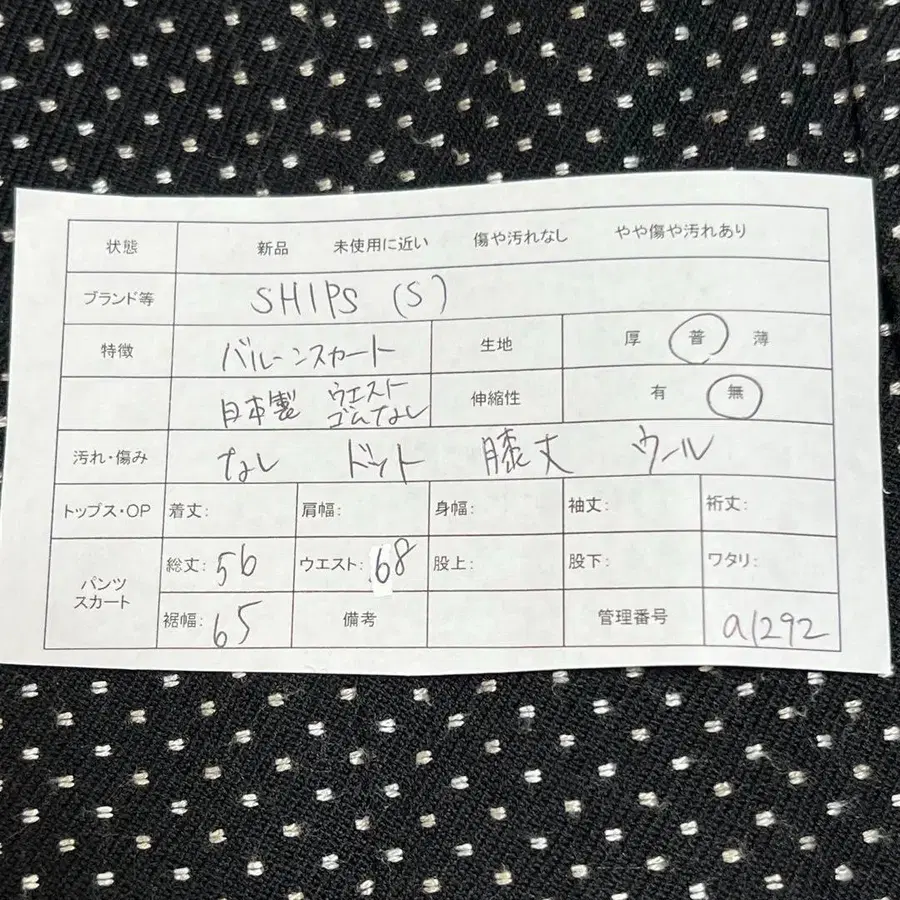 状態 新品 未使用に近い 傷や汚れなし やや傷や汚れあり
ブランド等 SHIPS (S)
特徴 バルーンスカート 生地 厚 普 薄
日本製 ウエストゴムなし 伸縮性 有 無
汚れ・傷み なし ドット 膝丈 ウール
トップス・OP 着丈: 肩幅: 身幅: 袖丈: 裄丈:
パンツ スカート 総丈: 56 ウエスト: 68 股上: 股下: ワタリ:
裾幅: 65 備考 管理番号 a1292